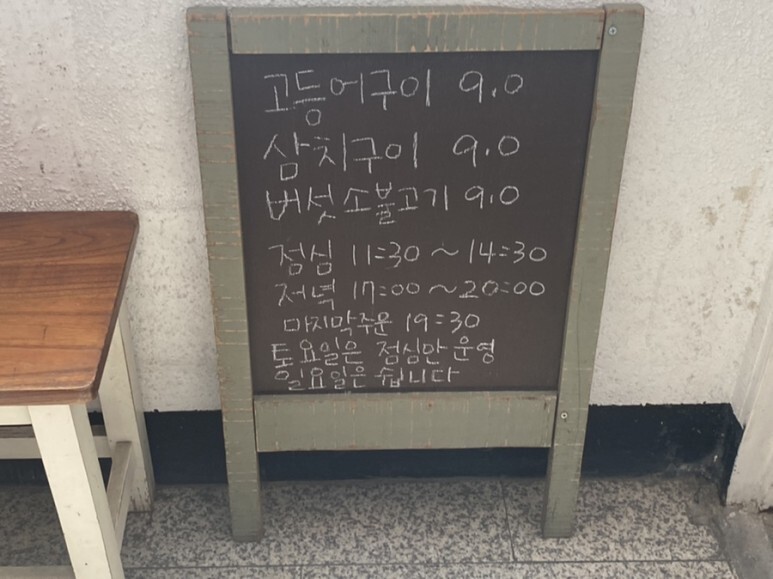 고등어구이 9.0
삼치구이 9.0
버섯소불고기 9.0
점심 11:30 ~ 14:30
저녁 17:00 ~ 20:00
마지막주문 19:30
토요일은 점심만 운영
일요일은 쉽니다